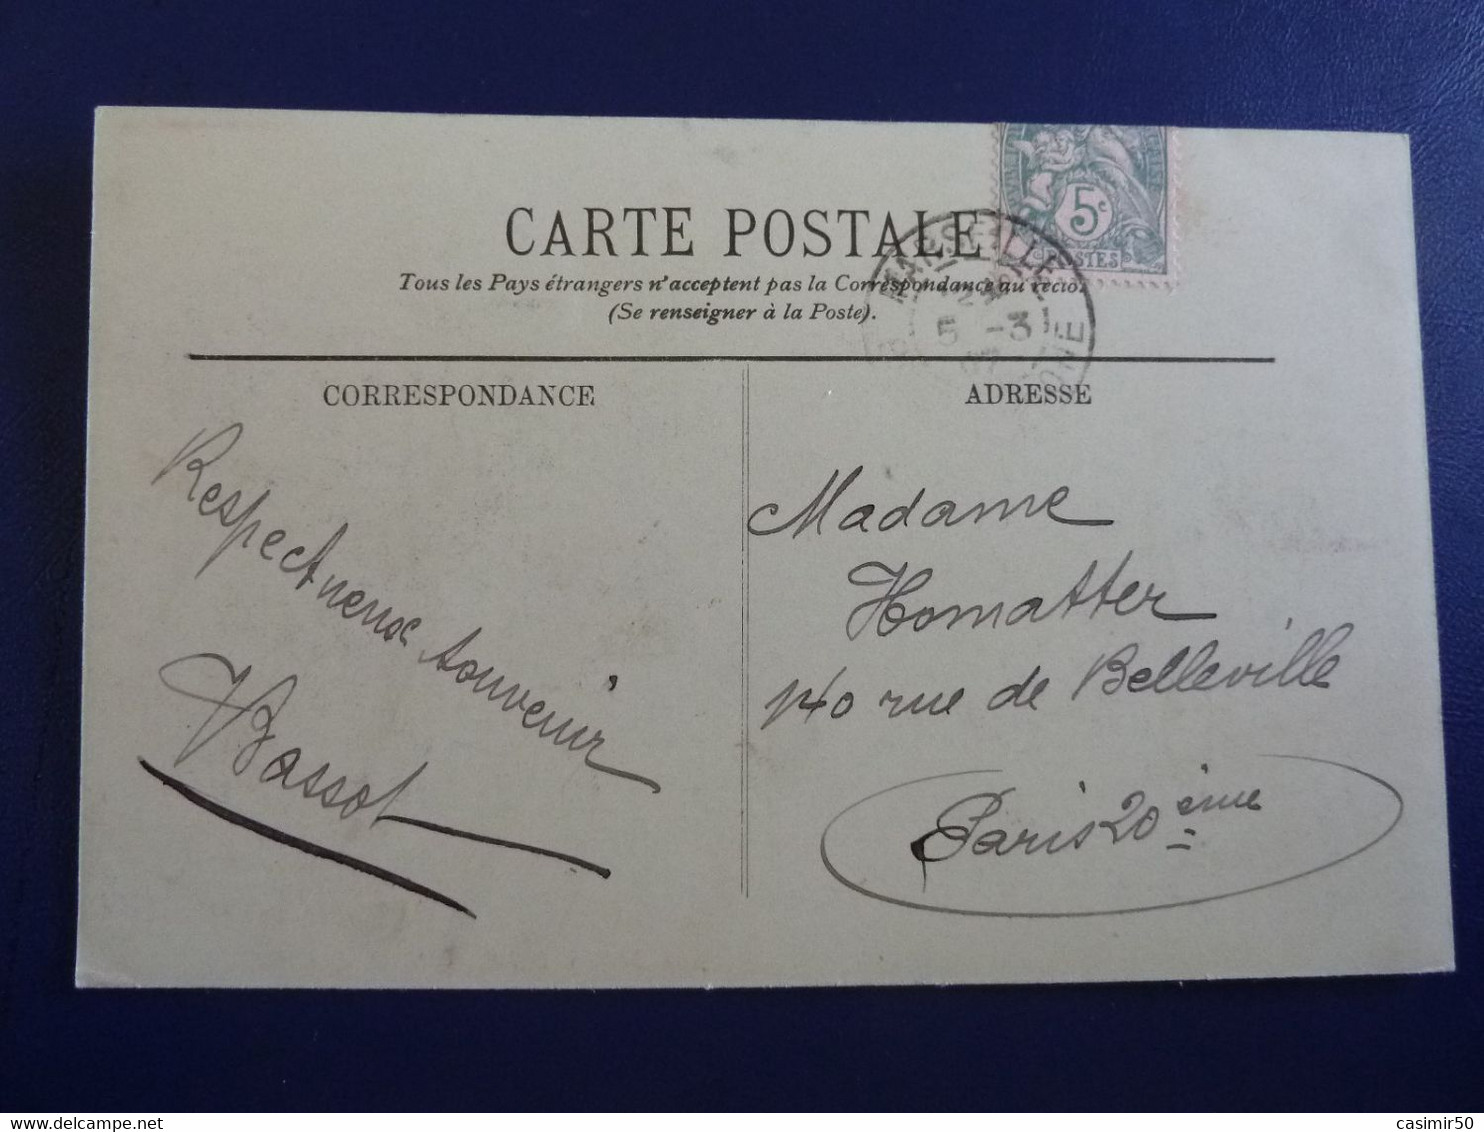 CARTE POSTALE
Tous les Pays étrangers n'acceptent pas la Correspondance au recto.
(Se renseigner à la Poste).
5c
POSTES
MARSEILLE
5 -3
CORRESPONDANCE
ADRESSE
Respectueux souvenir
Bassot
Madame
Homatter
140 rue de Belleville
Paris 20 ème
casimir50